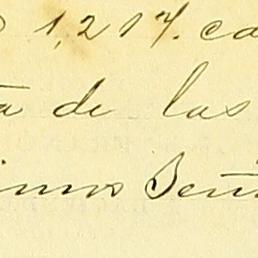 1,217. ca
ta de las
imos Señ